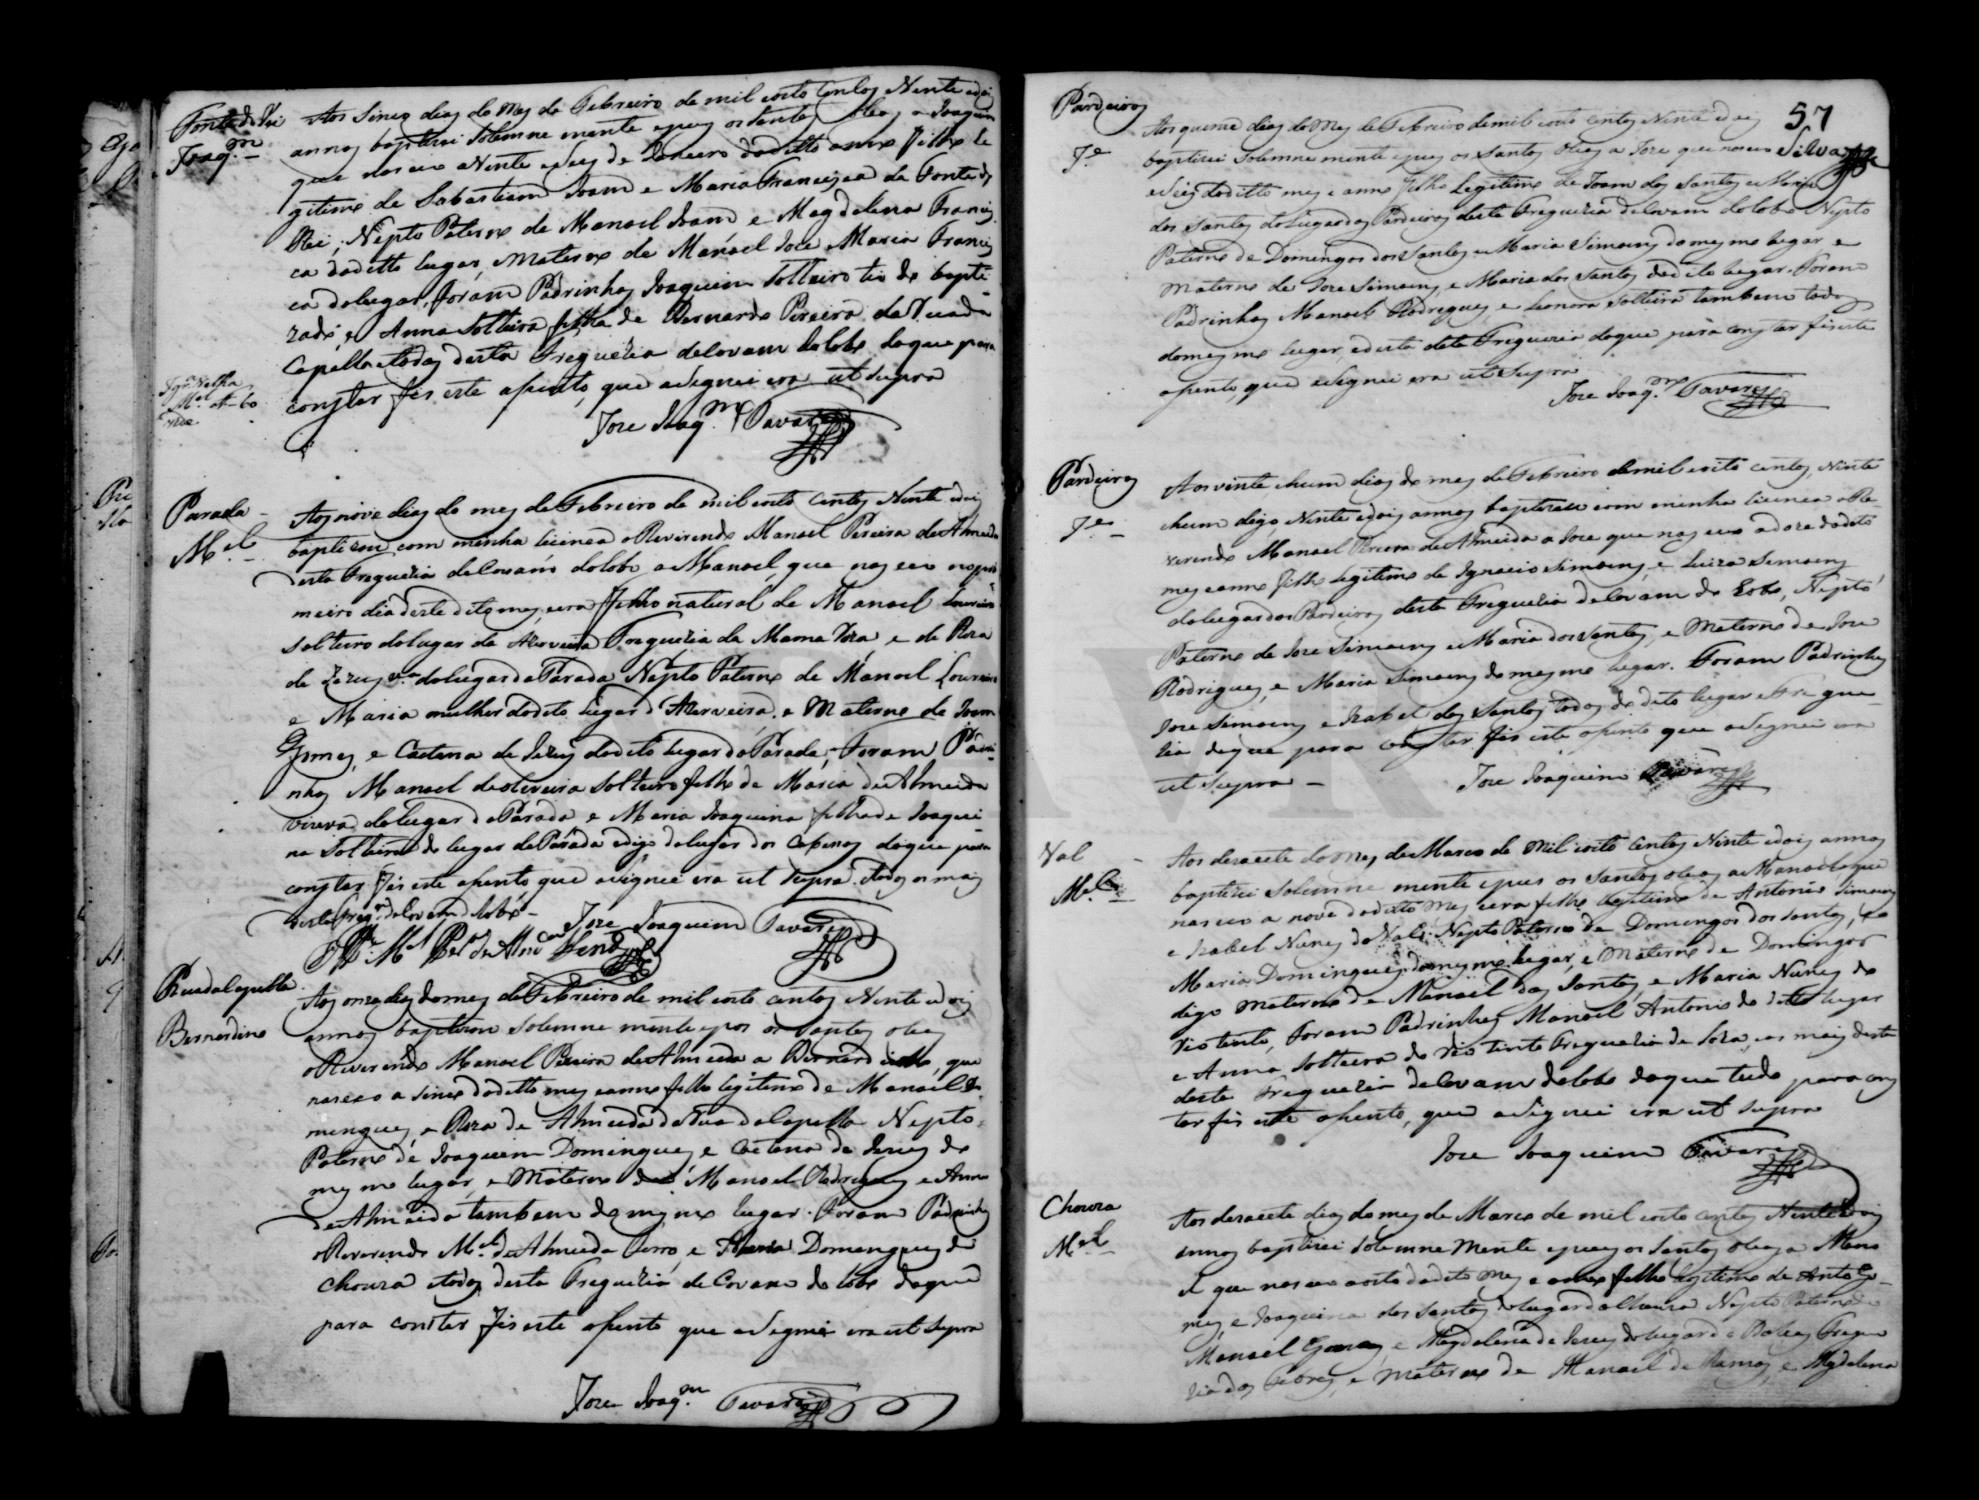 Fonte do Rei
Joaq.m
Aos Sinco dias do mes de Febreiro de mil outo Centos Vinte e dois
annos baptizei Solemne mente e puz os Santos Oleos a Joaquim
que nasceu a Vinte e seis de Janeiro do ditto anno Filho Le
gitimo de Sabastiam Joam e Maria Francisca da Fonte do
Rei, Nepto Paterno de Manoel Joam, e Magdalena Francis
ca do ditto lugar, Materno de Manoel Joze Maria Francis
ca do lugar, foram Padrinhos Joaquim Solteiro tio do bapti
zado, e Anna Solteira filha de Bernardo Pereira da Quada
Capella todos desta Freguezia de Covam do Lobo do que para
constar fis este asento, que asignei era ut supra
Joze Joaq.m Tavares
Parada
M.el
Aos nove dias do mes de Febreiro de mil outo Centos Vinte e dois
baptizou com minha licença o Reverendo Manoel Pereira de Almeida
desta Freguezia de Covam do Lobo, a Manoel, que nasceu no pri
meiro dia deste dito mes, e era Filho natural de Manoel Loureiro
solteiro do lugar da Freguezia de Mama Roza, e de Roza
de Jezus v.a do lugar da Parada Nepto Paterno de Manoel Loureiro
e Maria mulher do dito lugar e Materno de Joam
Gomes, e Caetana de Jezus do dito lugar da Parada; Foram Padri
nhos Manoel de Oliveira Solteiro filho de Maria de Almeida
viuva do lugar da Parada e Maria Joaquina filha de Joaqui
na Solteira do lugar da Parada digo do lugar dos do que para
constar fis este asento que asignei era ut supra. todos os mais
desta Freg.a de Covam do Lobo
Joze Joaquim Tavares
M.el Per.a de Alm.da
Quada Capella
Bernardino
Aos onze dias do mes de Febreiro de mil outo centos Vinte e dois
annos baptizou Solemne mente e pos os Santos oleos
o Reverendo Manoel Pereira de Almeida a Bernardino, que
nasceo a sinco do ditto mes e anno filho legitimo de Manoel Do
mingues, e Roza de Almeida da Quada Capella Nepto
Paterno de Joaquim Domingues, e Caetana de Jezus do
mesmo lugar, e Materno de Manoel Rodrigues e Anna
de Almeida tambem do mesmo lugar. Foram Padrinhos
o Reverendo M.el de Almeida e Maria Domingues da
Choura todos desta Freguezia de Covam do Lobo do que
para constar fis este asento que asignei era ut supra
Joze Joaq.m Tavares
57
Silva
Pardeiros
J.e
Aos quinze dias do mes de Febreiro de mil outo centos Vinte e dois
baptizei Solemne mente e puz os Santos Oleos a Joze que nasceu
a seis do ditto mes e anno Filho Legitimo de Joam dos Santos e Maria
dos Santos do lugar dos Pardeiros desta Freguezia de Covam do Lobo Nepto
Paterno de Domingos dos Santos e Maria Simoens do mesmo lugar e
Materno de Joze Simoens, e Maria dos Santos do dito lugar. Foram
Padrinhos Manoel Rodrigues, e Leonora Solteira tambem todos
do mesmo lugar, e desta Freguezia do que para constar fis este
asento, que asignei era ut supra
Joze Joaq.m Tavares
Pardeiros
J.e
Aos vinte e hum dias do mes de Febreiro de mil e oito centos, Vinte
e hum digo, Vinte e dois annos baptizou com minha licença o Re
verendo Manoel Pereira de Almeida a Joze que nasceu a doze do dito
mes e anno filho legitimo de Ignacio Simoens, e Luiza Simoens
do lugar dos Pardeiros desta Freguezia de Covam do Lobo, Nepto
Paterno de Joze Simoens e Maria dos Santos, e Materno de Joze
Rodrigues, e Maria Simoens do mesmo lugar. Foram Padrinhos
Joze Simoens e Izabel dos Santos todos do dito lugar e Fregue
zia do que para constar fis este asento que asignei era
ut supra
Joze Joaquim Tavares
Val
M.el
Aos dezacete do mes de Marco de mil outo Centos Vinte e dois annos
baptizei Solemne mente e pus os Santos oleos a Manoel que
nasceu a nove do ditto mes e era filho legitimo de Antonio Simoens
e Izabel Nunes do Val: Nepto Paterno de Domingos dos Santos, e
Maria Domingues do mesmo lugar, e Materno de Domingos
digo Materno de Manoel dos Santos, e Maria Nunes do
Rio tinto, foram Padrinhos Manoel Antonio do ditto lugar
e Anna Solteira do Rio tinto Freguezia de Soza, e os mais desta
deste Freguezia de Covam do Lobo do que tudo para cons
tar fis este asento, que asignei era ut supra
Joze Joaquim Tavares
Choura
M.el
Aos dezacete dias do mes de Marco de mil outo centos Vinte e dois
annos baptizei Solemne Mente e puz os Santos Oleos a Mano
el que nasceu a outo do dito mes e anno filho legitimo de Anto Go
mes, e Joaquina dos Santos do lugar da Choura Nepto Paterno de
Manoel Gomes, e Magdalena de Jezus do lugar de Fregue
zia dos Febres, e Materno de Manoel de Ramos, e Magdalena